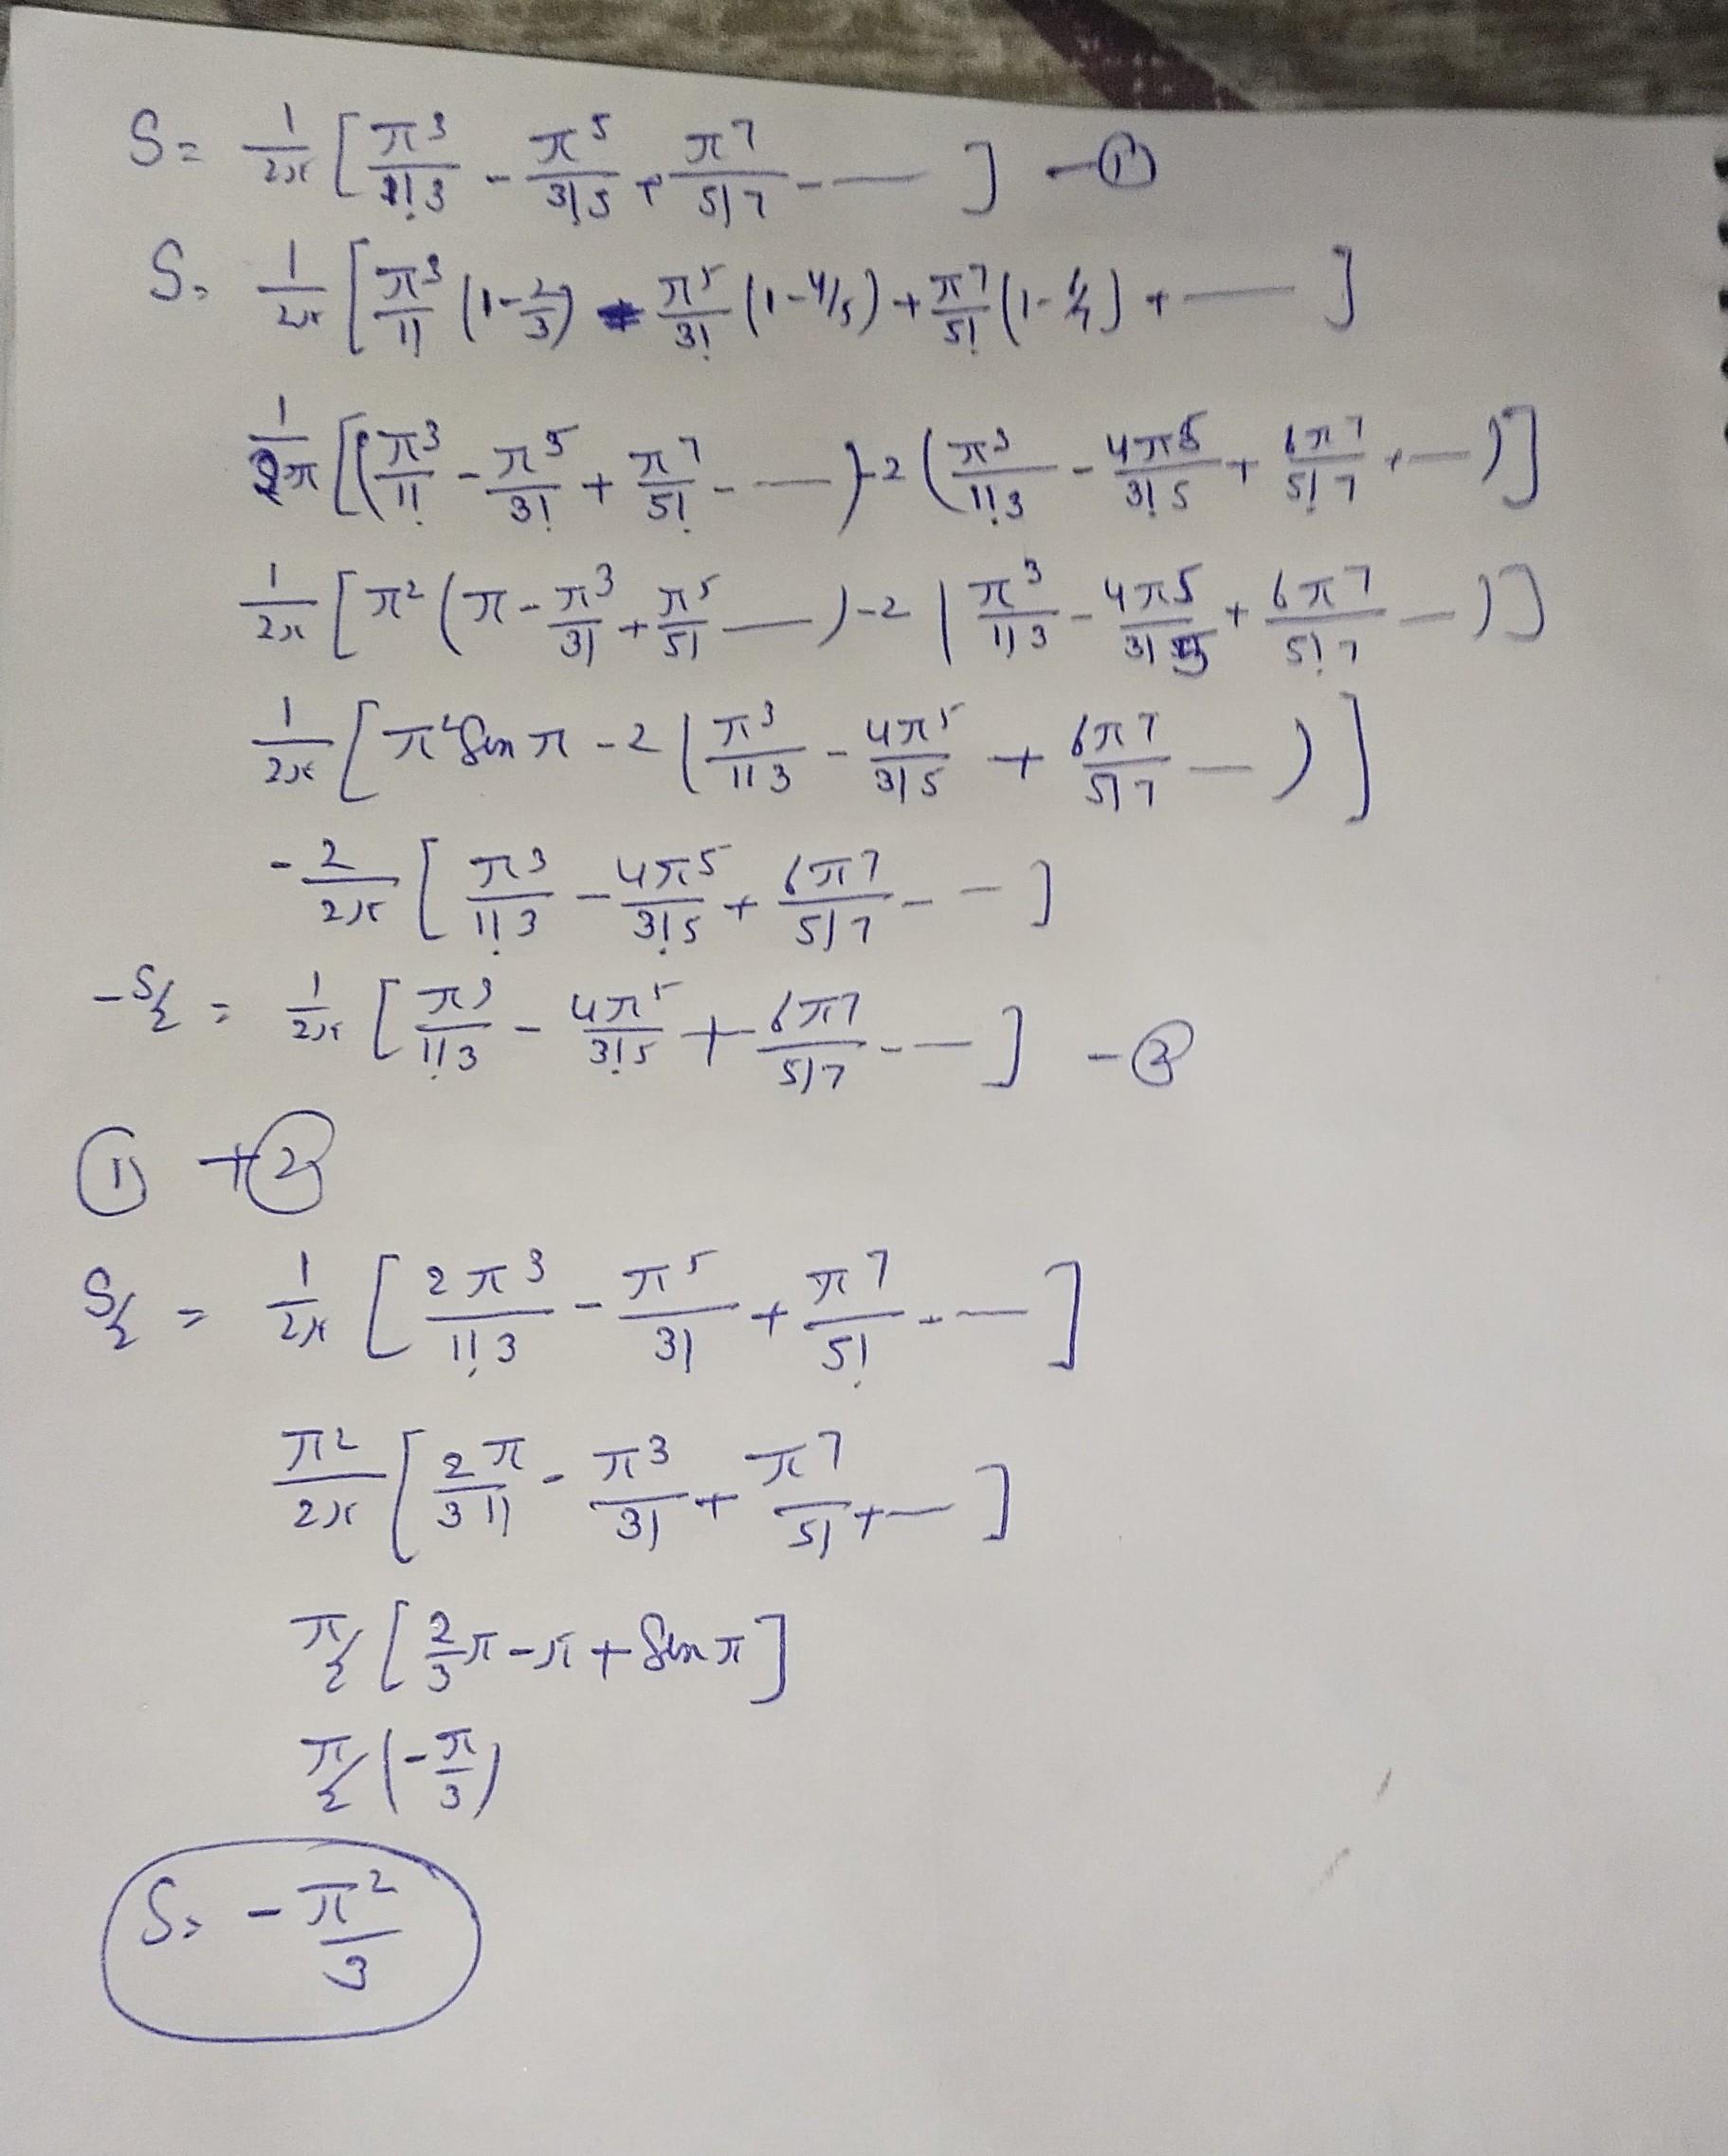 S = 1/2π [ π³/1!3 - π⁵/3!5 + π⁷/5!7 - — ] — ①
S = 1/2π [ π³/1! (1-2/3) - π⁵/3! (1-4/5) + π⁷/5! (1-6/7) + — ]
1/2π [(π³/1! - π⁵/3! + π⁷/5! - — ) -2 (π³/1!3 - 4π⁵/3!5 + 6π⁷/5!7 + — )]
1/2π [ π² (π - π³/3! + π⁵/5! — ) -2 ( π³/1!3 - 4π⁵/3!5 + 6π⁷/5!7 — )]
1/2π [ π² Sin π - 2 ( π³/1!3 - 4π⁵/3!5 + 6π⁷/5!7 — ) ]
- 2/2π [ π³/1!3 - 4π⁵/3!5 + 6π⁷/5!7 - - ]
- S/2 = 1/2π [ π³/1!3 - 4π⁵/3!5 + 6π⁷/5!7 - — ] - ②
① + ②
S/2 = 1/2π [ 2π³/1!3 - π⁵/3! + π⁷/5! - — ]
π²/2π [ 2π/3 1! - π³/3! + π⁷/5! + — ]
π/2 [ 2/3 π - π + Sin π ]
π/2 (-π/3)
S = - π²/3